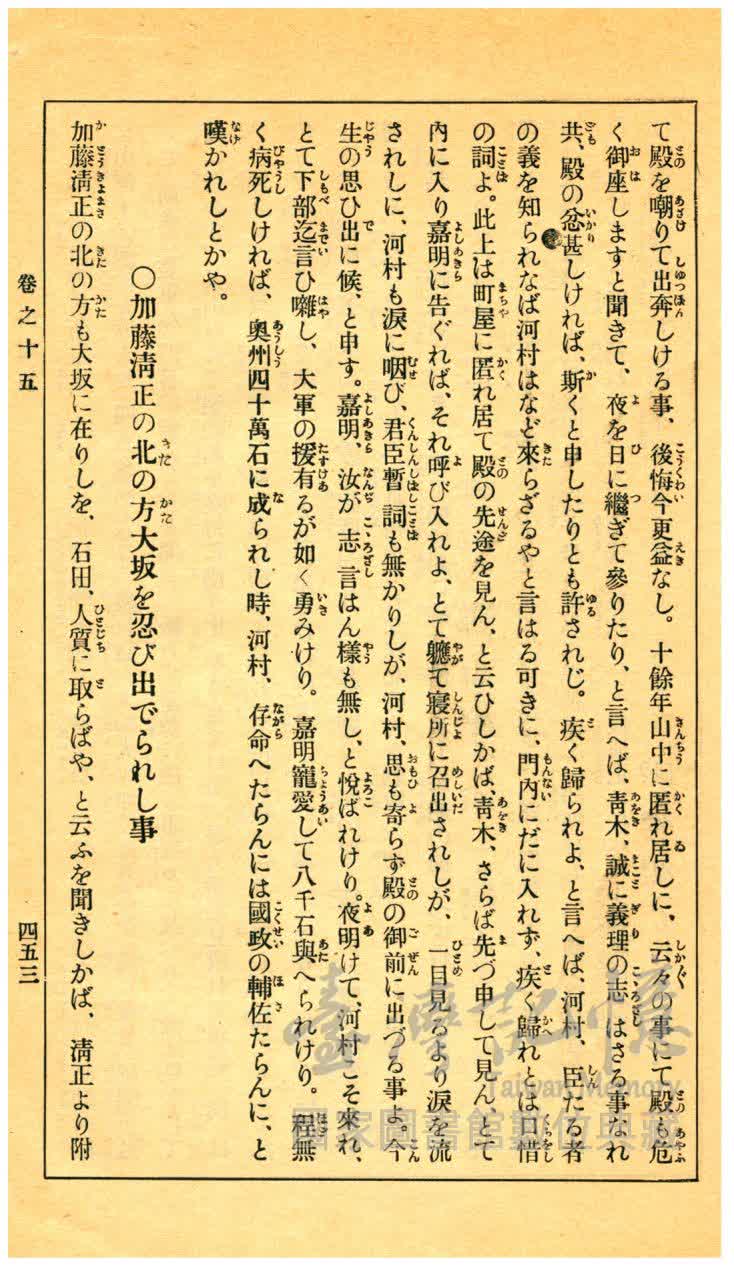 て殿を嘲りて出奔しける事、後悔今更益なし。十餘年山中に匿れ居しに、云々の事にて殿も危
く御座しますと聞きて、夜を日に繼ぎて參りたり、と言へば、靑木、誠に義理の志はさる事なれ
共、殿の忿甚しければ、斯くと申したりとも許されじ。疾く歸られよ、と言へば、河村、臣たる者
の義を知られなば河村はなど來らざるやと言はる可きに、門內にだに入れず、疾く歸れとは口惜
の詞よ。此上は町屋に匿れ居て殿の先途を見ん、と云ひしかば、靑木、さらば先づ申して見ん、とて
內に入り嘉明に告ぐれば、それ呼び入れよ、とて軈て寢所に召出されしが、一目見るより淚を流
されしに、河村も淚に咽び、君臣暫詞も無かりしが、河村、思も寄らず殿の御前に出づる事よ。今
生の思ひ出に候、と申す。嘉明、汝が志言はん樣も無し、と悅ばれけり。夜明けて、河村こそ來れ、
とて下部迄言ひ囃し、大軍の援有るが如く勇みけり。嘉明寵愛して八千石與へられけり。程無
く病死しければ、奧州四十萬石に成られし時、河村、存命へたらんには國政の輔佐たらんに、と
嘆かれしとかや。
〇加藤淸正の北の方大坂を忍び出でられし事
加藤淸正の北の方も大坂に在りしを、石田、人質に取らばや、と云ふを聞きしかば、淸正より附
卷之十五
四五三
臺灣記憶
Taiwan Memory
國家圖書館數位典藏